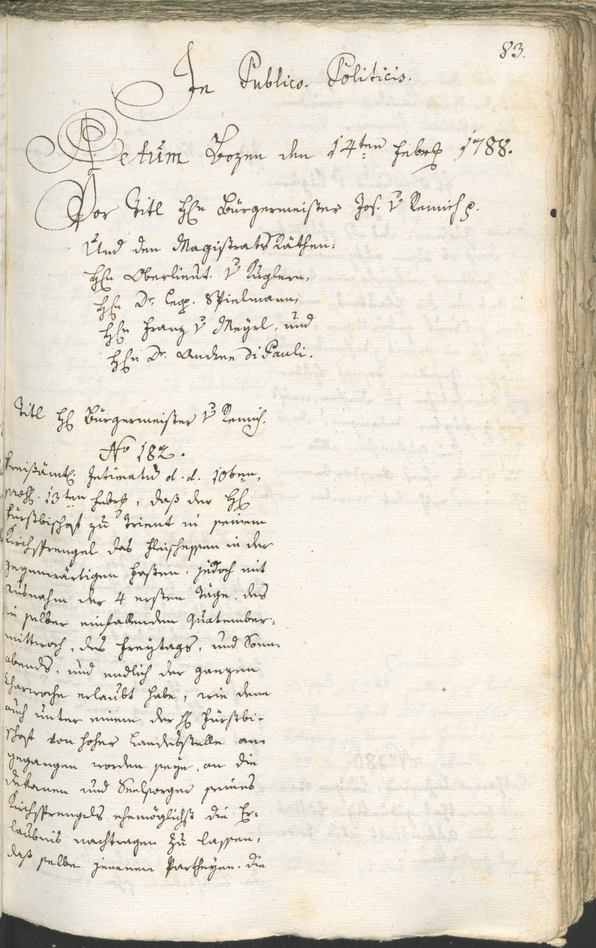 83.
In Publico. Politicis.
Actum Bozen den 14ten Febr 1788.
Vor Titl Hn Bürgermeister Jos. v Remich p.
Und den Magistrats Räthen:
Hn Oberlieut. v Kuglern,
Hn Dr. Leop. Spielmann,
Hn Franz v Meyrl, und
Hn Dr. Andree Di Pauli.
Titl H Bürgermeister v Remich.
No 182.
Kreisämtl. Intimatum d. d. 10ten,
13ten Febr, daß der H
Fürstbischof zu Trient in seinem
Kirchsprengel das Fleischessen in der
gegenwärtigen Fasten, jedoch mit
Ausnahm der 4 ersten Täge, des
in selber einfallenden Quatember-
mittwoch, des Freytags, und Sonn-
abends, und endlich der ganzen
Charwoche erlaubt habe, wie dann
auch unter einem der H Fürstbi-
schof von hoher Landesstelle an-
gegangen worden seye, an die
Dekanen und Seelsorger seines
Kirchsprengels ehemöglichst die Er-
laubnis nachtragen zu lassen,
daß selbe jenen Partheyen, die